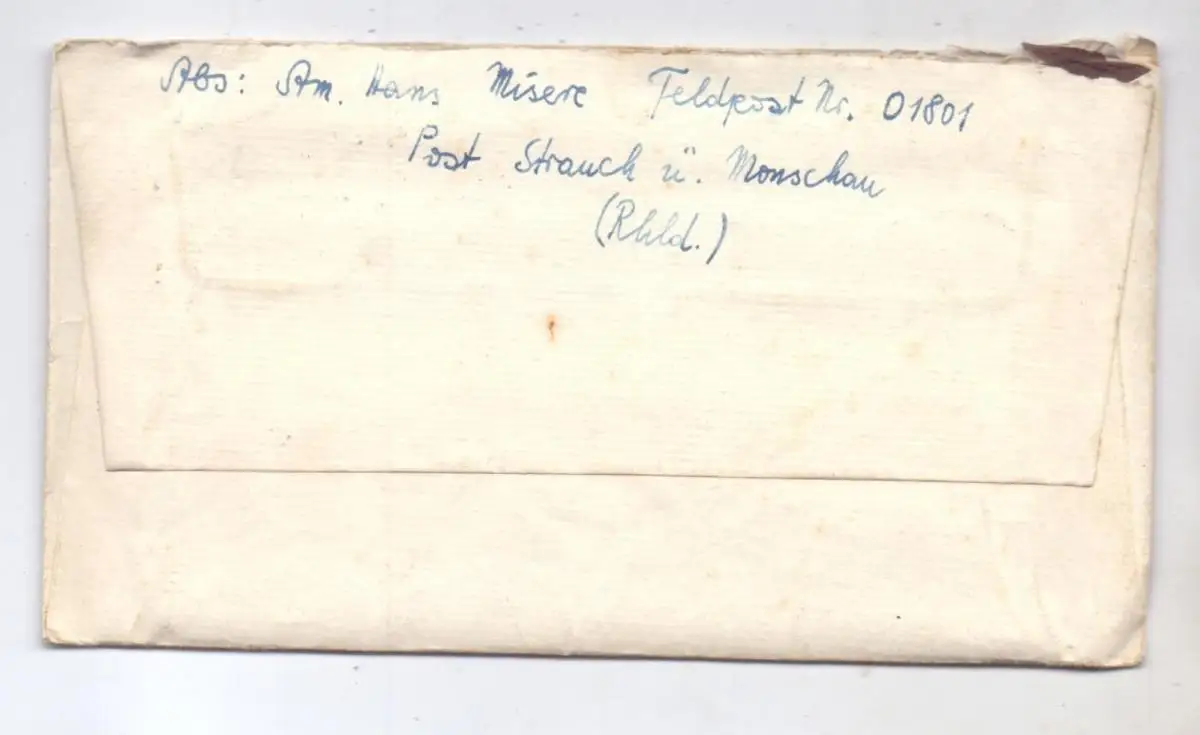 Abs: Am. Hans Misere Feldpost Nr. 01801
Post Strauch ü. Monschau
(Rhld.)